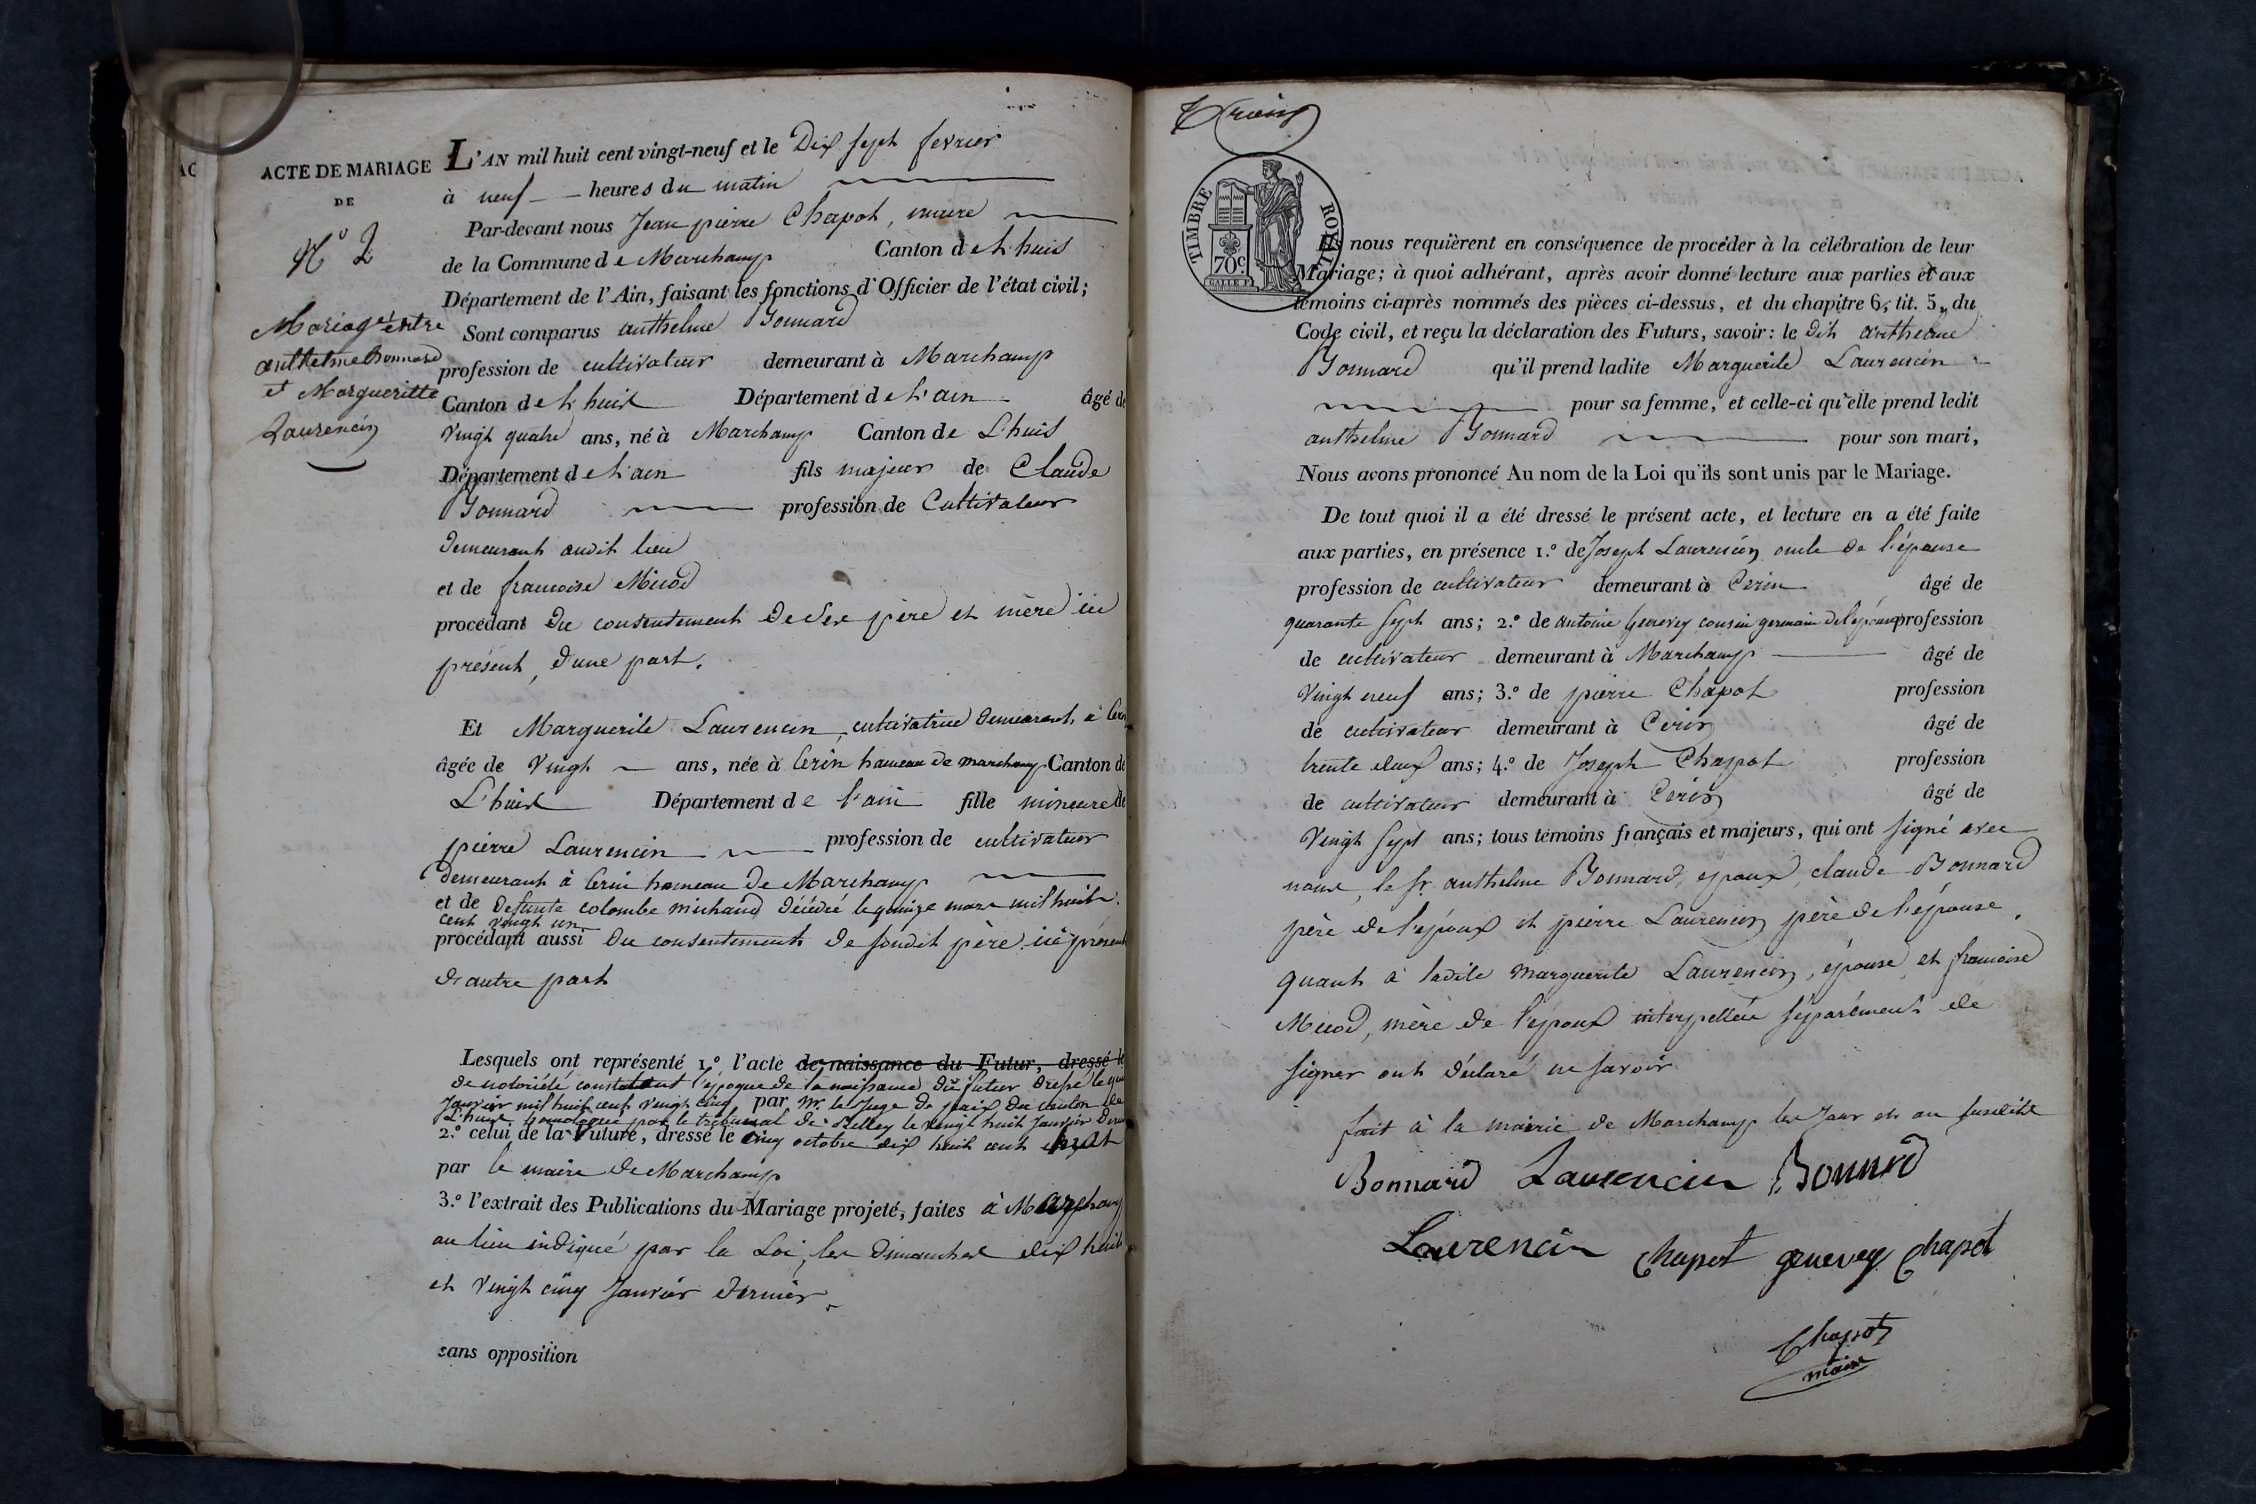 AC
ACTE DE MARIAGE
DE
N.º 2
Mariage entre
anthelme Bonnard
et Margueritte
Laurencin
L'AN mil huit cent vingt-neuf et le Dix sept fevrier
à neuf heures du matin
Par-devant nous Jean pierre Chapot, maire
de la Commune de Marchamp Canton de L'huis
Département de l'Ain, faisant les fonctions d'Officier de l'état civil;
Sont comparus anthelme Bonnard
profession de cultivateur demeurant à Marchamp
Canton de L'huis Département de l'ain âgé de
vingt quatre ans, né à Marchamp Canton de L'huis
Département de l'ain fils majeur de Claude
Bonnard profession de Cultivateur
demeurant audit lieu
et de francoise Micod
procédant Du consentement de ses père et mère ici
présent, d'une part.
Et Marguerite Laurencin, cultivatrice demeurant à Cerin
âgée de Vingt ans, née à Cerin hameau de marchamp Canton de
L'huis Département de l'ain fille mineure de
pierre Laurencin profession de cultivateur
demeurant à Cerin hameau de Marchamp
et de defunte colombe michaud décédée le quinze mars mil huit
cent vingt un
procédant aussi Du consentement de sondit père ici présent
d'autre part
Lesquels ont représenté 1.º l'acte de naissance du Futur, dressé le
de notoriété constatant l'époque de la naissance du futur dressé le
Janvier mil huit cent vingt cinq par Mr. le Juge de paix du canton de
L'huis homologué par le tribunal de Belley le vingt huit Janvier
2.º celui de la Future, dressé le cinq octobre dix huit cent huit
par le maire de Marchamp
3.º l'extrait des Publications du Mariage projeté, faites à Marchamp
au lieu indiqué par la Loi, les dimanches dix huit
et vingt cinq Janvier dernier.
sans opposition
Trois
TIMBRE ROYAL
70c.
Ils nous requièrent en conséquence de procéder à la célébration de leur
Mariage; à quoi adhérant, après avoir donné lecture aux parties et aux
témoins ci-après nommés des pièces ci-dessus, et du chapitre 6, tit. 5, du
Code civil, et reçu la déclaration des Futurs, savoir: le dit anthelme
Bonnard qu'il prend ladite Marguerite Laurencin
pour sa femme, et celle-ci qu'elle prend ledit
anthelme Bonnard pour son mari,
Nous avons prononcé Au nom de la Loi qu'ils sont unis par le Mariage.
De tout quoi il a été dressé le présent acte, et lecture en a été faite
aux parties, en présence 1.º de Joseph Laurencin oncle de l'épouse
profession de cultivateur demeurant à Cerin âgé de
quarante sept ans; 2.º de antoine genevey cousin germain de l'épouse profession
de cultivateur demeurant à Marchamp âgé de
Vingt neuf ans; 3.º de pierre Chapot profession
de cultivateur demeurant à Cerin âgé de
trente deux ans; 4.º de Joseph Chapot profession
de cultivateur demeurant à Cerin âgé de
Vingt sept ans; tous témoins français et majeurs, qui ont signé avec
nous, le sr. anthelme Bonnard, époux, claude Bonnard
père de l'époux et pierre Laurencin père de l'épouse,
quant à ladite Marguerite Laurencin, épouse, et francoise
Micod, mère de l'époux interpellée séparément de
signer ont déclaré ne savoir
fait à la mairie de Marchamp les Jour et an susdits
Bonnard Laurencin Bonnard
Laurencin Chapot genevey Chapot
Chapot
maire